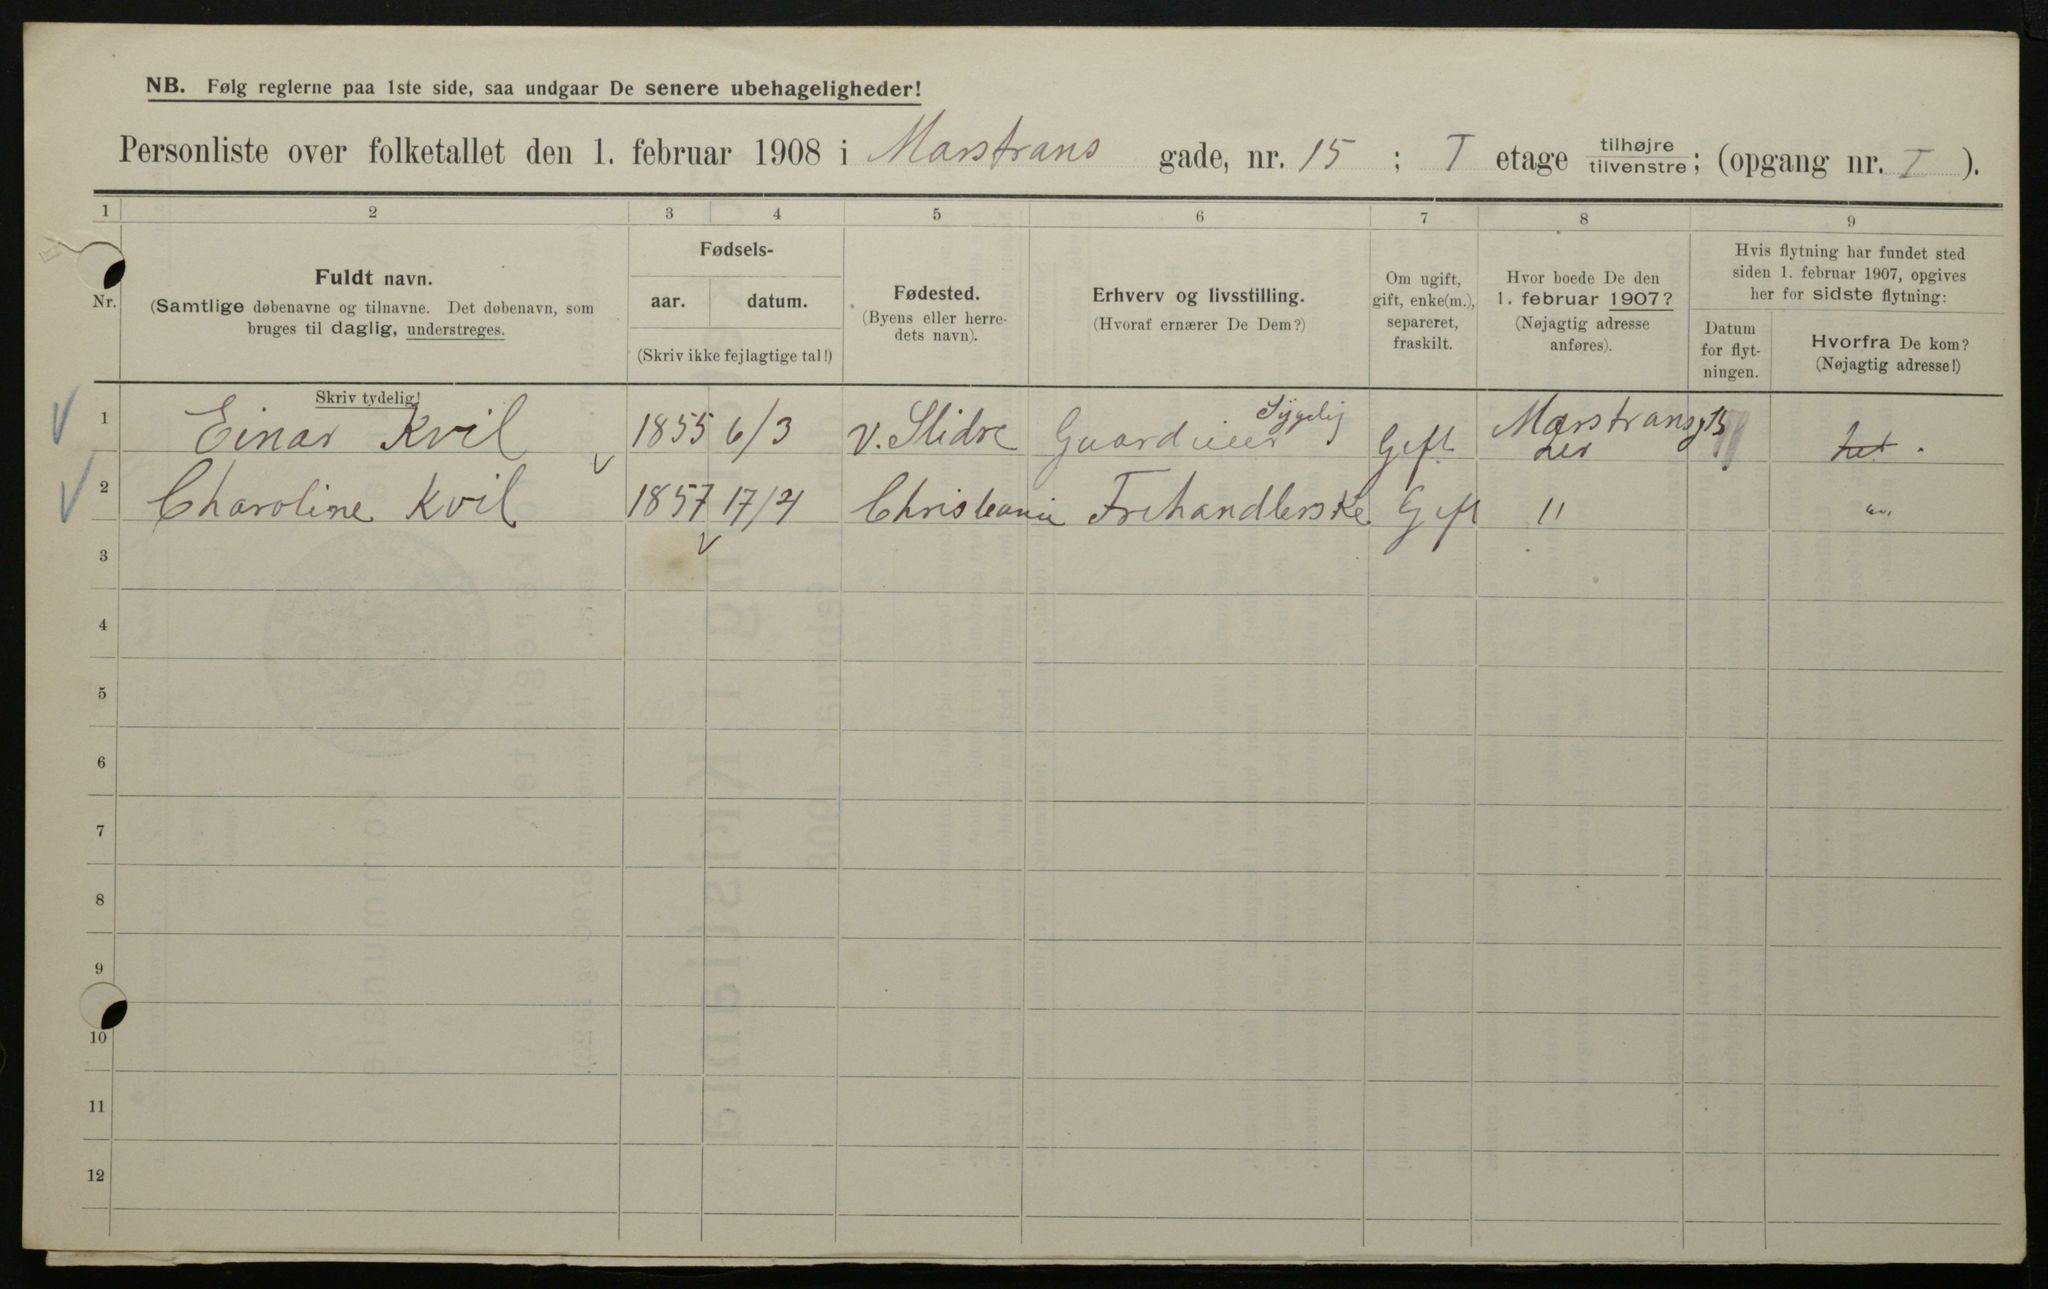 NB. Følg reglerne paa 1ste side, saa undgaar De senere ubehageligheder!
Personliste over folketallet den 1. februar 1908 i Marstrans gade, nr. 15 ; I etage tilhøjre/tilvenstre; (opgang nr. I ).
1 2 3 4 5 6 7 8 9
Nr.
Fuldt navn.
(Samtlige døbenavne og tilnavne. Det døbenavn, som
bruges til daglig, understreges.
Skriv tydelig!
Fødsels-
aar. datum.
(Skriv ikke fejlagtige tal!)
Fødested.
(Byens eller herre-
dets navn).
Erhverv og livsstilling.
(Hvoraf ernærer De Dem?)
Om ugift,
gift, enke(m.),
separeret,
fraskilt.
Hvor boede De den
1. februar 1907?
(Nøjagtig adresse
anføres).
Hvis flytning har fundet sted
siden 1. februar 1907, opgives
her for sidste flytning:
Datum
for flyt-
ningen.
Hvorfra De kom?
(Nøjagtig adresse!)
1 Einar Kvil 1855 6/3 V. Slidre Sygelig Gift Marstransgt 15
2 Charoline Kvil 1857 17/4 Christeania Frehandlerske Gift "
3
4
5
6
7
8
9
10
11
12